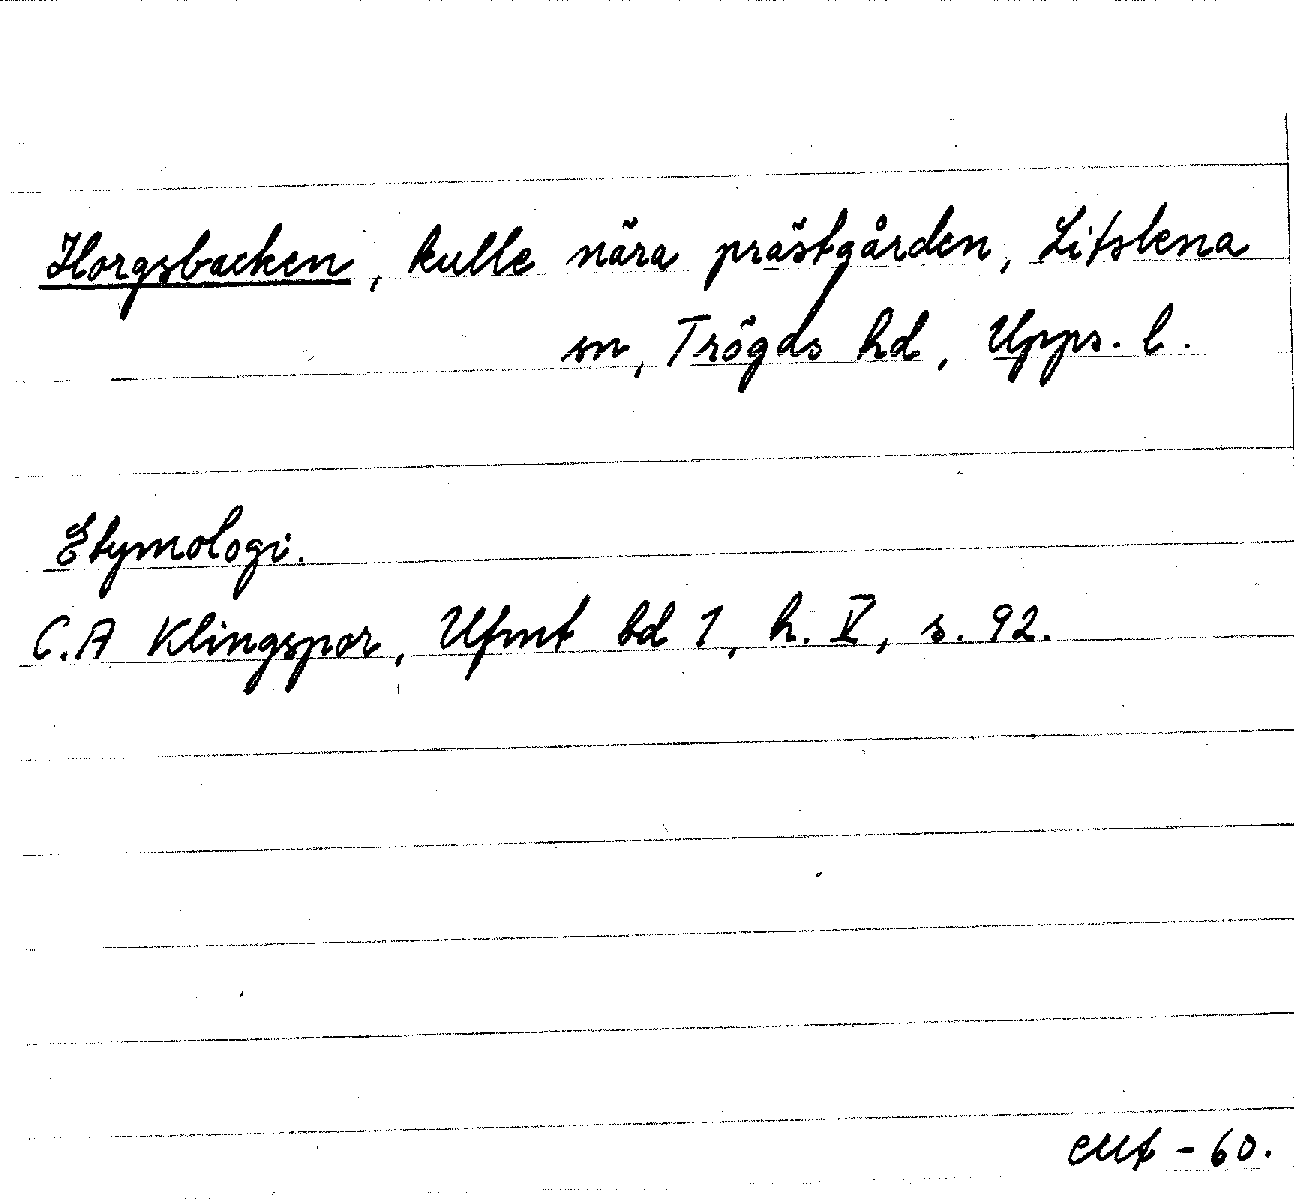 Horgsbacken, kulle nära prästgården, Litslena
sn, Trögds hd, Upps. l.
Etymologi.
C.A Klingspor, Ufmt bd 1, h. V, s. 92.
- 60.